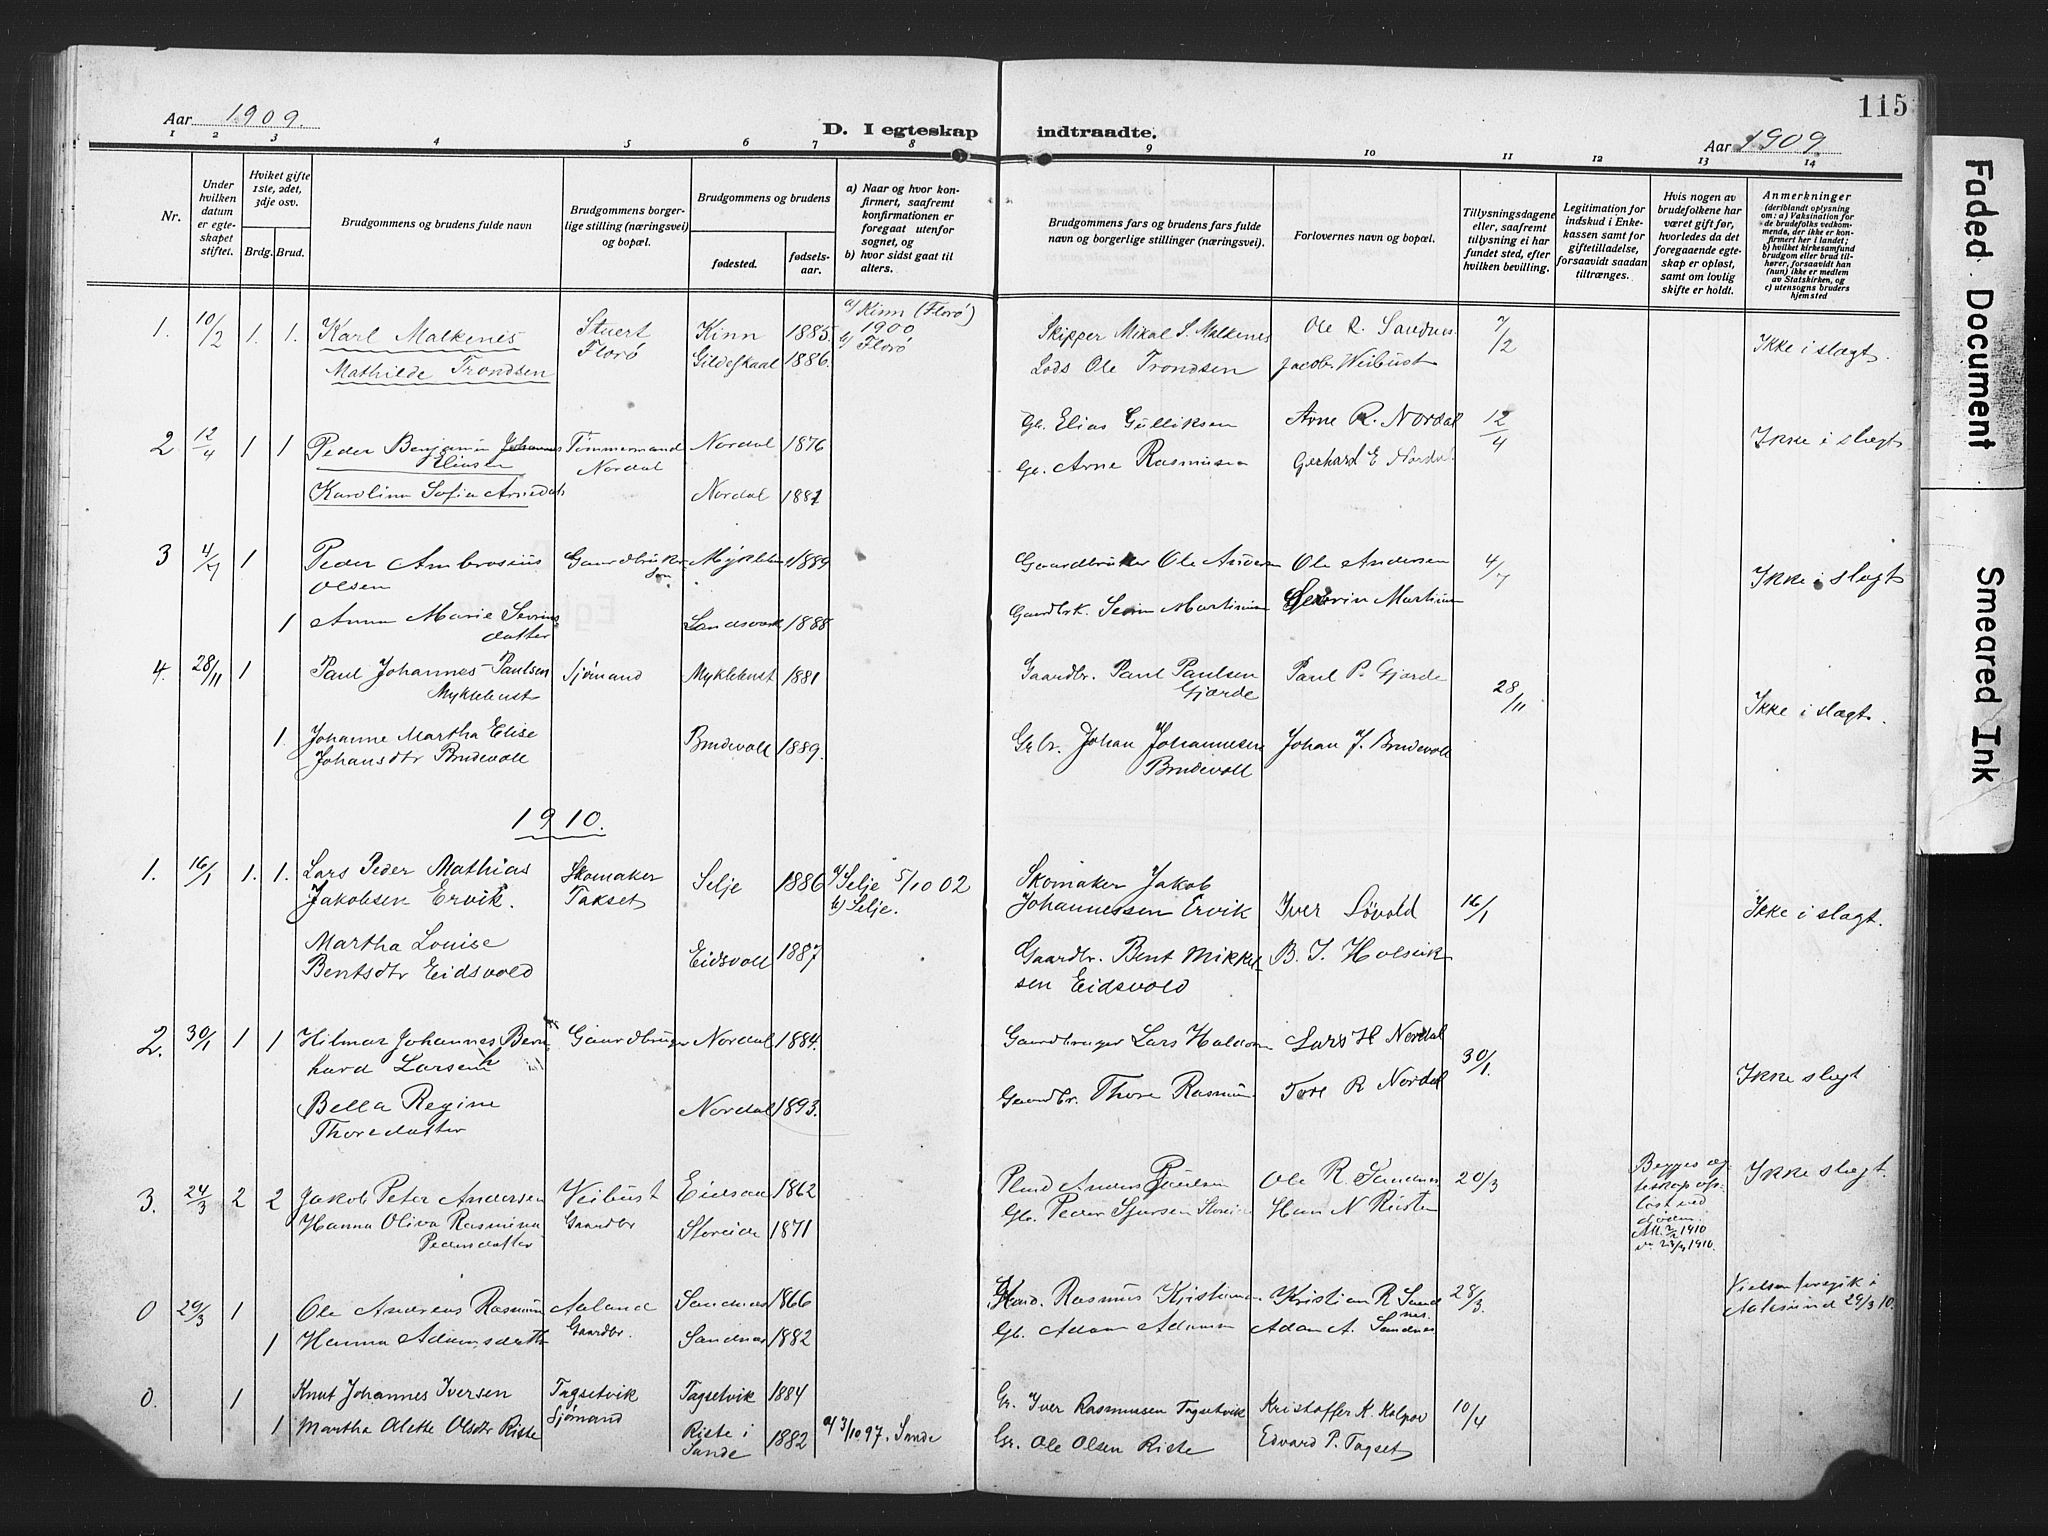 115
Aar 1909.
D. I egteskap indtraadte.
Aar 1909
1 2 3 4 5 6 7 8 9 10 11 12 13 14
Nr.
Under hvilken datum er egteskapet stiftet.
Hviket gifte 1ste, 2det, 3dje osv.
Brdg. Brud.
Brudgommens og brudens fulde navn
Brudgommens borgerlige stilling (næringsvei) og bopæl.
Brudgommens og brudens
fødested.
fødselsaar.
a) Naar og hvor konfirmert, saafremt konfirmationen er foregaat utenfor sognet, og
b) hvor sidst gaat til alters.
Brudgommens fars og brudens fars fulde navn og borgerlige stillinger (næringsvei).
Forlovernes navn og bopæl.
Tillysningsdagene eller, saafremt tillysning ei har fundet sted, efter hvilken bevilling.
Legitimation for indskud i Enkekassen samt for giftetilladelse, forsaavidt saadan tiltrænges.
Hvis nogen av brudefolkene har været gift før, hvorledes da det foregaaende egteskap er opløst, samt om lovlig skifte er holdt.
Anmerkninger
(deriblandt oplysning om: a) Vaksination for de brudefolks vedkommende, der ikke er konfirmert her i landet; b) hvilket kirkesamfund brudgom eller brud tilhører, forsaavidt han (hun) ikke er medlem av Statskirken, og c) utensogns bruders hjemsted
1. 10/2 1. 1. Karl Malkenes Stuert Florø Kinn 1885. a) Kinn (Florø) 1900 b) Florø Skipper Mikal S. Malkenes Ole R. Sandnes 7/2 Ikke i slægt.
Mathilde Trondsen Gildeskaal 1886. Lods Ole Trondsen Jacob Weibust
2 12/4 1 1 Peder Benjamin Johannes Eliassen Tømmermand Nordal Nordal 1876 Gb. Elias Gulliksen Arne R. Nordal 12/4 Ikke i slægt
Karolina Sofia Arnedat. Nordal 1887 Gb. Arne Rasmusen Gerhard E Nordal
3 4/7 1 Peder Ambrosius Olsen Gaardbruker Søn Myklebu 1889 Gaardbruker Ole Andersen Ole Andersen 4/7 Ikke i slægt
1 Anna Marie Sevrins datter Sandsværk 1888 Gaardbrk. Sevrin Martinus Severin Martinus
4. 28/11 1 Paul Johannes Paulsen Myklebust Sjømand Myklebust 1881 Gaardbr. Paul Paulsen Gjærde Paul P. Gjærde 28/11 Ikke i slægt.
1. Johanne Martha Elise Johansdtr Brudevoll Brudevoll 1889. Gbr. Johan Johannesen Brudevoll Johan J. Brudevoll
1910.
1. 16/1 1. 1. Lars Peder Mathias Jakobsen Ervik. Skomaker Takset Selje 1886 a) Selje 5/10 02 b) Selje. Skomaker Jakob Johannessen Ervik Iver Løvold 16/1 Ikke i slægt.
Martha Louise Bentsdtr Eidsvold Eidsvoll 1887 Gaardbr. Bent Mikkelsen Eidsvold B. J. Holsvik
2. 30/1 1 1 Hilmar Johannes Bernhard Larsen Gaardbruger Nordal 1884. Gaardbruger Lars Halvorsen Lars H Nordal 30/1. Ikke slægt
Bella Regine Thoredatter Nordal 1893. Gaardbr. Thore Rasmus. Tore R Nordal
3. 24/3 2 2 Jakob Peter Andersen Veibust Gaardbr Eidsaa 1862 Anders Ole R. Sandnes 20/3 Begges egteskap opløst ved døden. 1910 1910. Ikke slægt.
Hanna Oliva Rasmina Pedersdatter Storeide 1871 Gb. Peder Sjursen Storeide Hans N Riste
0 29/3 1 Ole Andreas Rasmusen Aaland Gaardbr. Sandnes 1866 Rasmus Kristiansen Kristian R Sandnes. 28/3. Vielsen foregik i Aalesund 29/3 10.
1 Hanna Adamsdatter Sandnes 1882 Gb. Adam Adamsen Adam A. Sandnes
0. 1 Knut Johannes Iversen Tagsetvik Sjømand Tagsetvik 1884 Gr. Iver Rasmussen Tagsetvik Kristoffer K. 10/4
1 Martha Alette Olsdtr Riste Riste i Sande 1882 a) 3/10 97. Sande Gr. Ole Olsen Riste Edvard P. Tagset
Faded Document
Smeared Ink